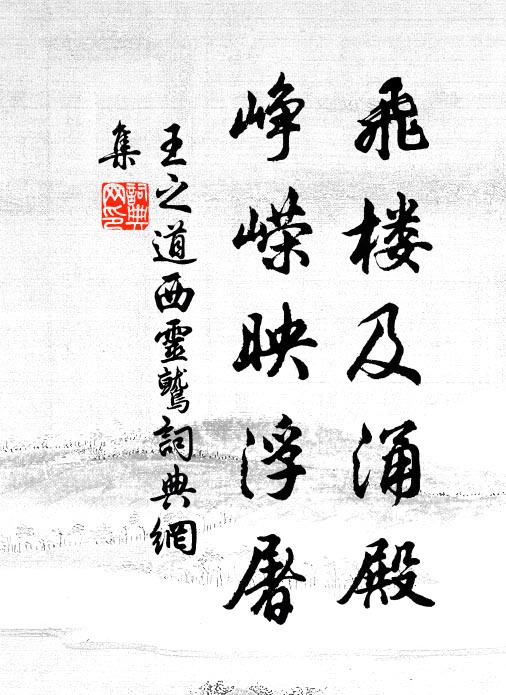 飛楼及涌殿
峥嵘映浮屠
王之道西靈鷲詞典網
集
詞典網印